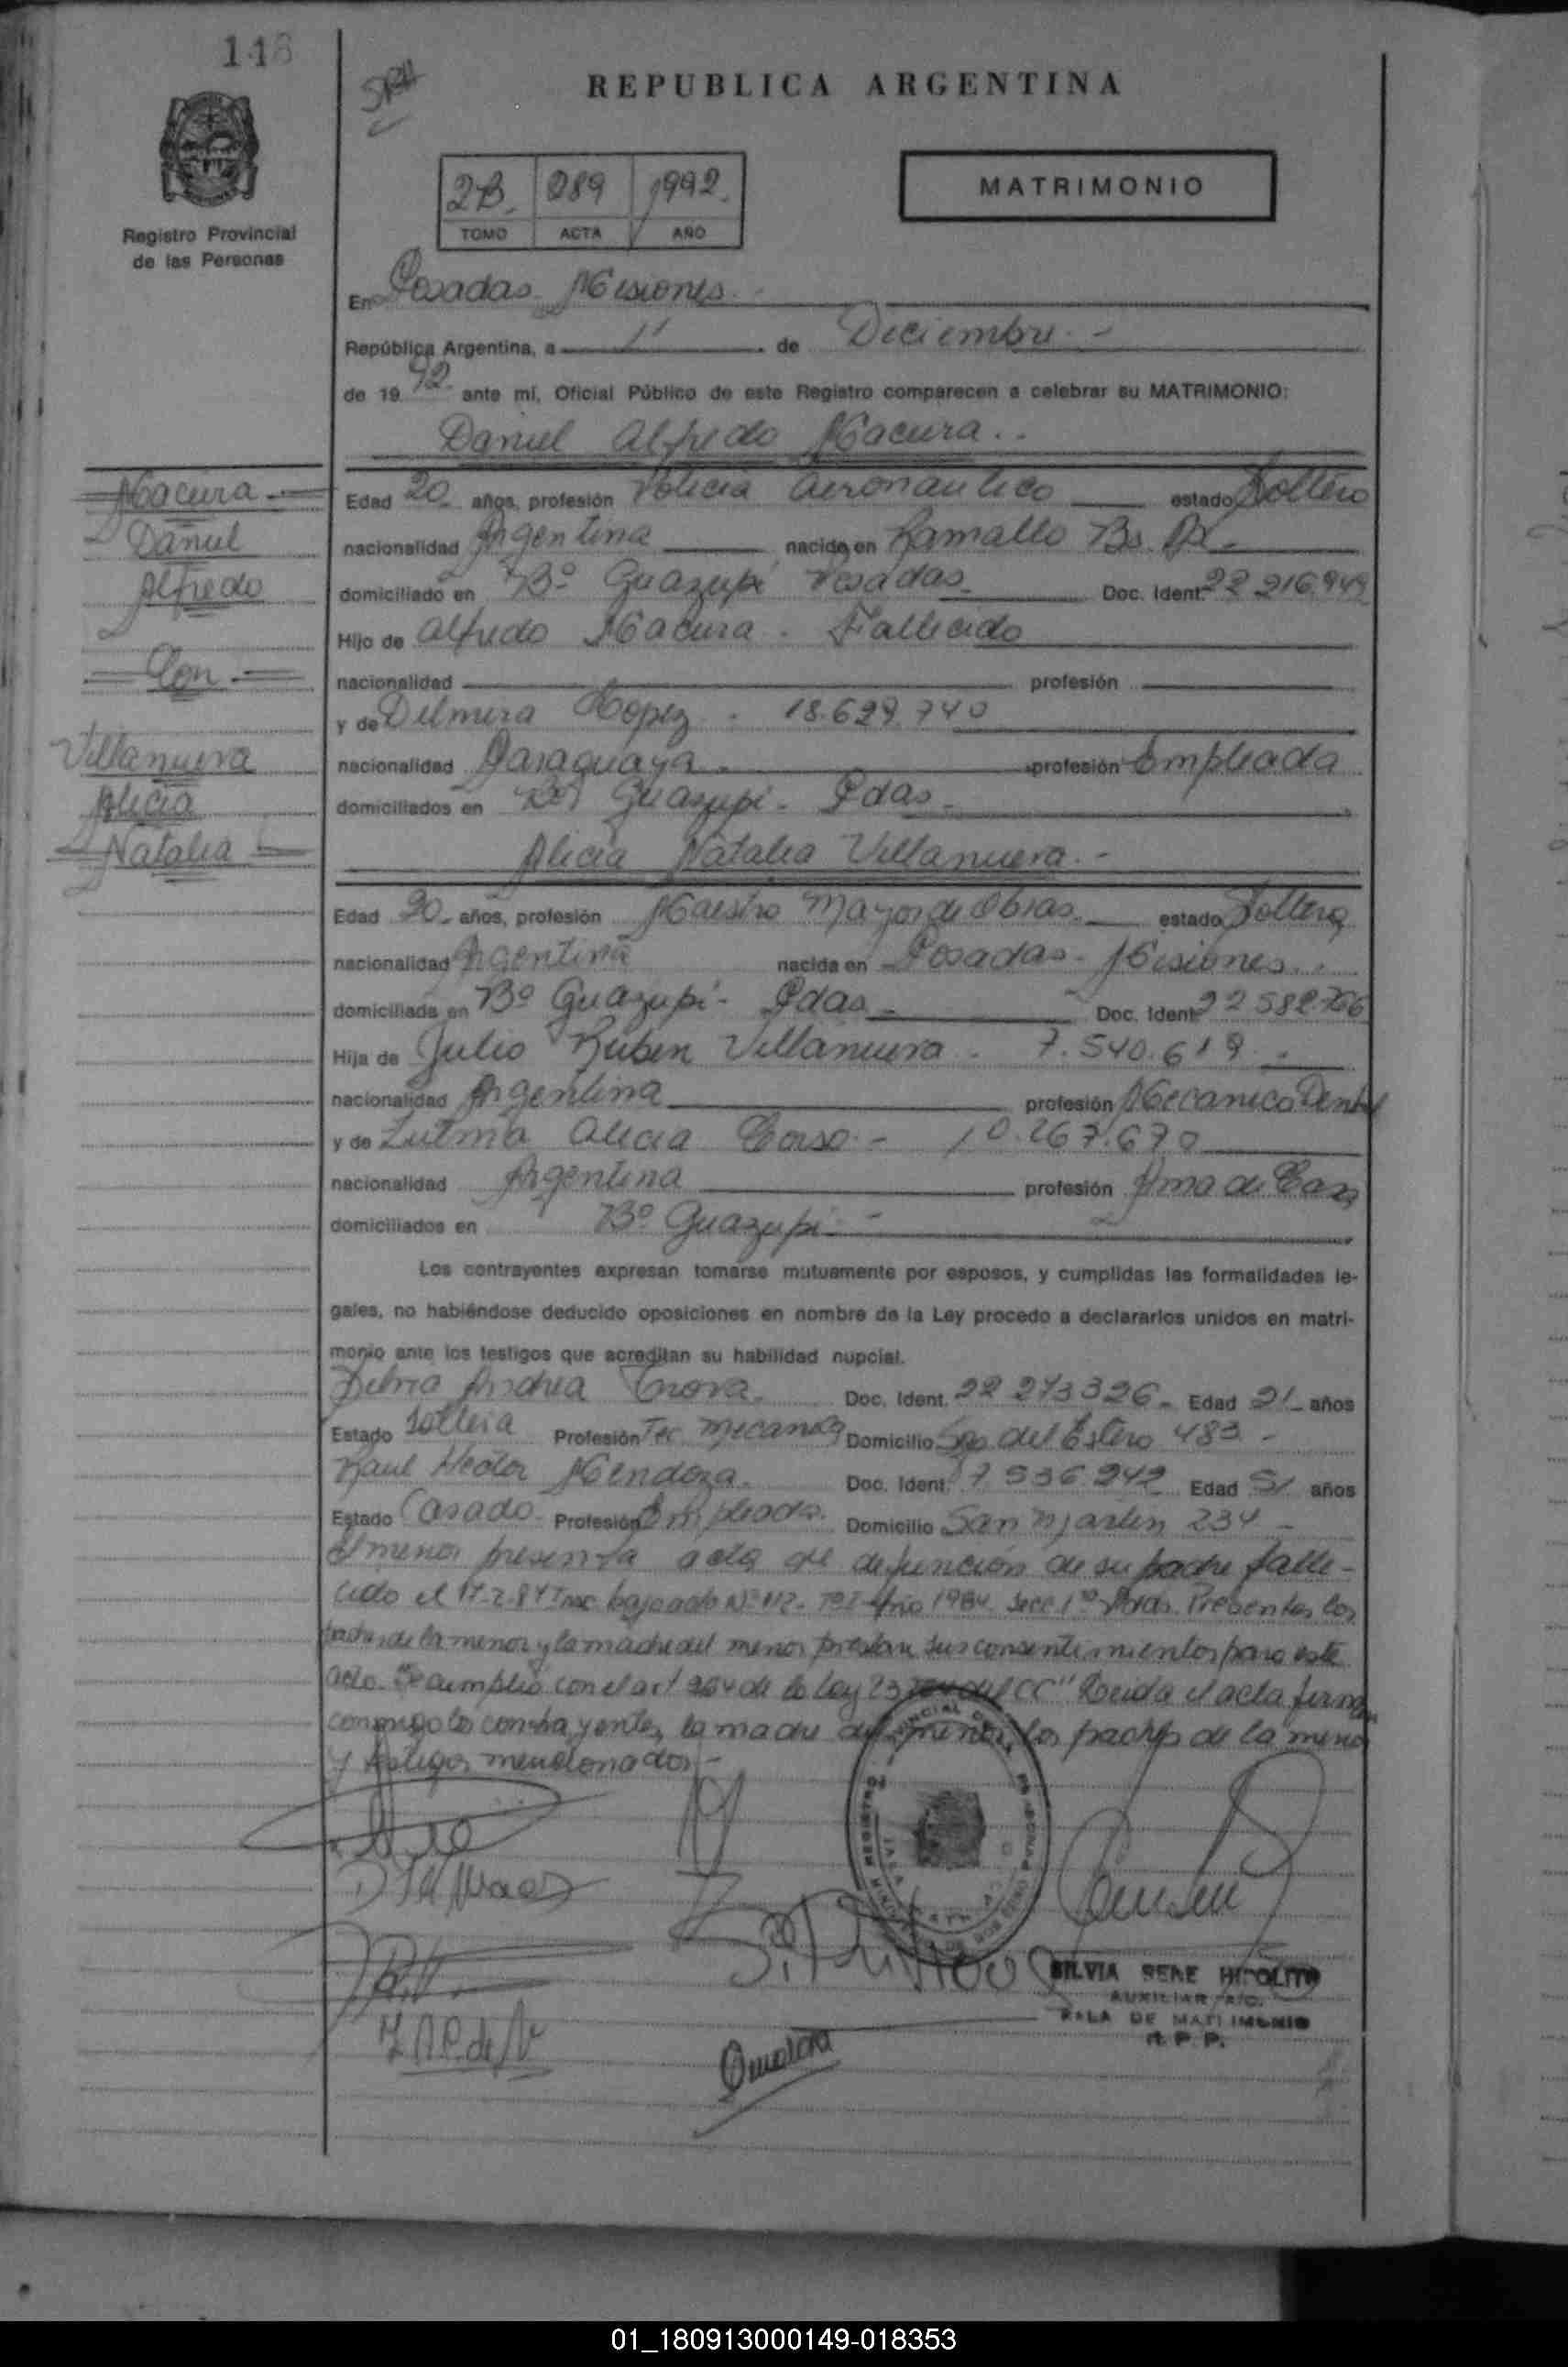 148
REPUBLICA ARGENTINA
2B. 289 1992.
TOMO ACTA AÑO
MATRIMONIO
Registro Provincial
de las Personas
En Posadas Misiones.
República Argentina, a 1º de Diciembre.-
de 1992. ante mí, Oficial Público de este Registro comparecen a celebrar su MATRIMONIO:
Daniel Alfredo Macura..
Macura
Daniel
Alfredo
Con
Villanueva
Alicia
Natalia
Edad 20 años, profesión Policia Aeronautico estado Soltero
nacionalidad Argentina nacido en Ramallo Bs. As.
domiciliado en Bº Guazupi Posadas Doc. Ident. 22 216.949
Hijo de Alfredo Macura. Fallecido
nacionalidad profesión
y de Delmira Lopez. 18.629.740
nacionalidad Paraguaya profesión Empleada
domiciliados en Guazupi. Pdas.
Alicia Natalia Villanueva.-
Edad 20 años, profesión Maestro Mayor de Obras. estado Soltera
nacionalidad Argentina nacida en Posadas - Misiones.
domiciliada en Bº Guazupi - Pdas Doc. Ident. 22 582.766
Hija de Julio Ruben Villanueva. 7.540.619.
nacionalidad Argentina profesión Mecanico Dental
y de Zulma Alicia - 10.267.670
nacionalidad Argentina profesión Ama de Casa
domiciliados en Bº Guazupi -
Los contrayentes expresan tomarse mutuamente por esposos, y cumplidas las formalidades le-
gales, no habiéndose deducido oposiciones en nombre de la Ley procedo a declararlos unidos en matri-
monio ante los testigos que acreditan su habilidad nupcial.
Andrea Doc. Ident. 22 273326 Edad 21 años
Estado Soltera Profesión Tec. Domicilio Sgo. del Estero 483 -
Raul Hector Mendoza. Doc. Ident. 7.536.242 Edad 51 años
Estado Casado Profesión Empleado. Domicilio San Martin 234 -
El menor presenta acta de defunción de su padre falle-
cido el 17-2-84 Insc. bajo acta Nº 112- Tº I Año 1984. Secc 1º Pdas. Presentes los
padres de la menor y la madre del menor prestan sus consentimientos para este
acto. Se cumplió con el art 264 de la Ley del CC" Leida el acta firman
conmigo los contrayentes, la madre del menor, los padres de la menor
y testigos mencionados -
SILVIA RENE HIPOLITO
AUXILIAR A/C.
SALA DE MATRIMONIO
R. P. P.
01_180913000149-018353